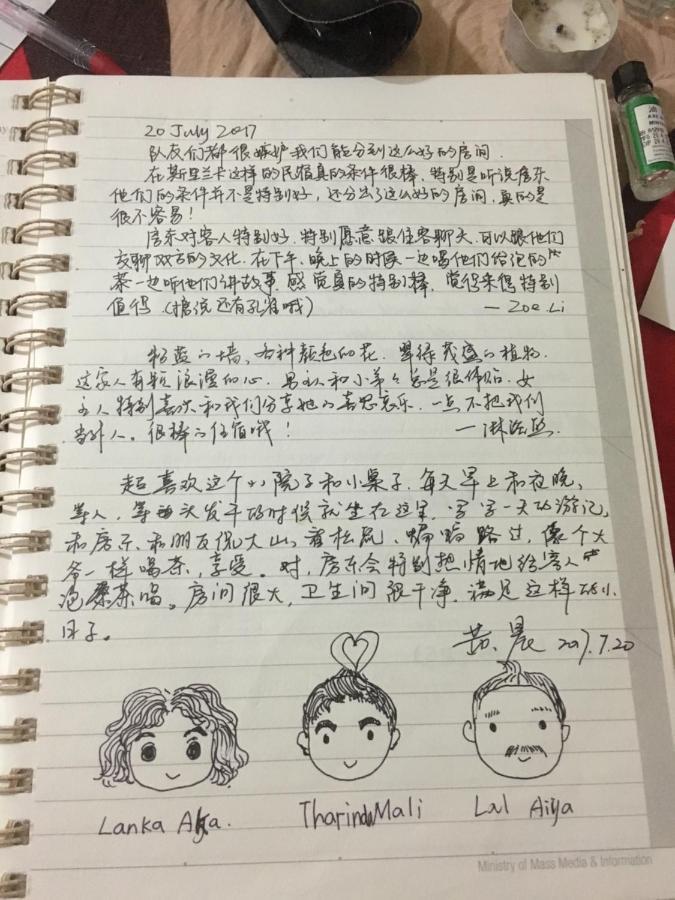 20 July 2017
队友们都很嫉妒我们能分到这么好的房间.
在斯里兰卡这样的民宿真的条件很棒, 特别是听说房东
他们的条件并不是特别好, 还分出了这么好的房间, 真的是
很不容易!
房东对客人特别好, 特别愿意跟住客聊天, 可以跟他们
交聊双方的文化. 在下午、晚上的时候一边喝他们给泡的
茶一边听他们讲故事, 感觉真的特别棒, 觉得来得特别
值得 (据说还有孔雀哦) — Zoe. Li
粉蓝的墙、各种颜色的花、翠绿茂盛的植物.
这家人有颗浪漫的心. 男主人和小弟弟总是很体贴. 女
主人特别喜欢和我们分享她的喜怒哀乐. 一点不把我们
当外人. 很棒的住宿哦!
超喜欢这个小院子和小桌子. 每天早上和夜晚,
等人, 等头发干的时候就坐在这里, 写写一天的游记,
和房东、和朋友侃大山, 看松鼠、蝙蝠路过, 像个大
爷一样喝茶, 享受. 对, 房东会特别热情地给客人
泡茶喝. 房间很大, 卫生间很干净, 满足这样的小
日子.
晨 2017.7.20
Lanka Akka.
Tharindu Mali
Lal Aiya
Ministry of Mass Media & Information